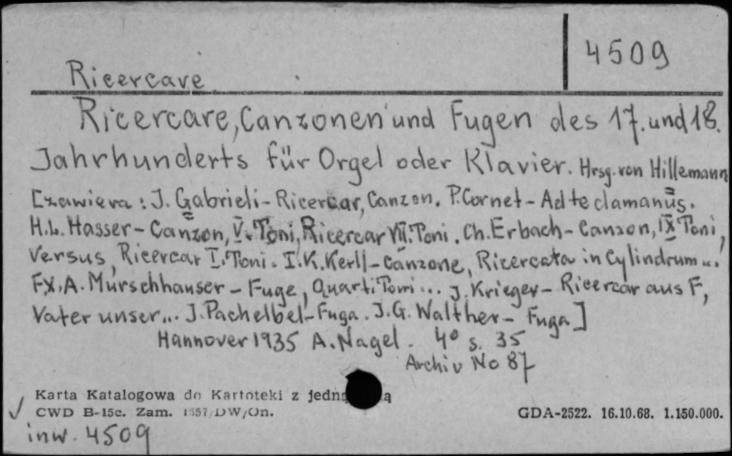 4509
Ricercare
Ricercare, Canzonen und Fugen des 17. und 18.
Jahrhunderts für Orgel oder Klavier. Hrsg. von Hillemann
[zawiera: J. Gabrieli - Ricercar, Canzon. P. Cornet - Ad te clamamus.
H.L. Hasser - Canzon, V. Toni, Ricercar VII. Toni. Ch. Erbach - Canzon, IX Toni,
Versus, Ricercar I. Toni. I.K. Kerll - Canzone, Ricercata in Cylindrum...
FX.A. Murschhauser - Fuge, Quarti Toni... J. Krieger - Ricercar aus F,
Vater unser... J. Pachelbel - Fuga. J.G. Walther - Fuga]
Hannover 1935 A. Nagel. 4° s. 35
Archiv No 87
Karta Katalogowa do Kartoteki z
CWD B-15c. Zam. DW/On.
GDA-2522. 16.10.68. 1.150.000.
inw. 4509